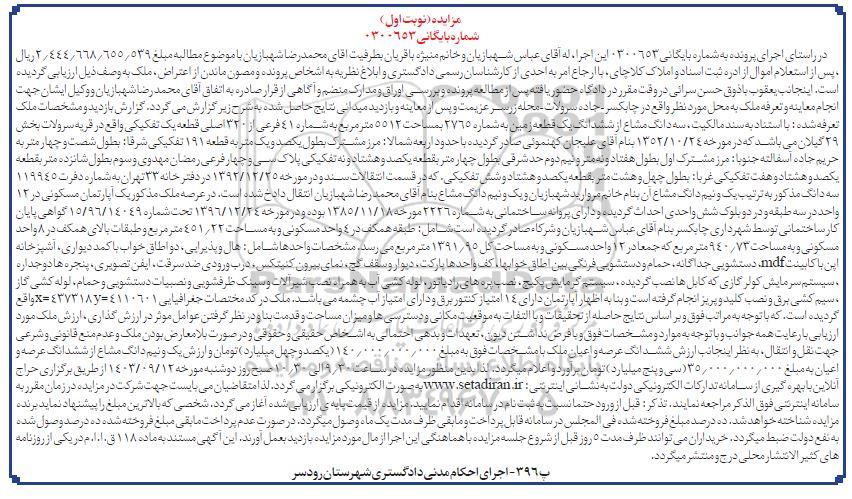 مزایده (نوبت اول)
شماره بایگانی ۰۳۰۰۶۵۳
در راستای اجرای پرونده به شماره بایگانی ۰۳۰۰۶۵۳ این اجرا، له آقای عباس شهبازیان و خانم منیژه باقریان بطرفیت اقای محمدرضا شهبازیان با موضوع مطالبه مبلغ ۲/۴۴۴/۶۶۸/۶۵۵/۵۳۹ ریال
، پس از استعلام اموال از ادره ثبت اسناد و املاک کلاچای، با ارجاع امر به احدی از کارشناسان رسمی دادگستری و ابلاغ نظریه به اشخاص پرونده و مصون ماندن از اعتراض، ملک به وصف ذیل ارزیابی گردیده
است. اینجانب یعقوب باذوق حسن سرائی در وقت مقرر در دادگاه حضور یافته پس از مطالعه پرونده و بررسی اوراق و مدارک منضم و آگاهی از قرار صادره به اتفاق آقای محمد رضا شهبازیان و وکیل ایشان جهت
انجام معاینه و تعرفه ملک به محل مورد نظر واقع در چابکسر-جاده سرولات-محله رزسر عزیمت و پس از معاینه و بازدید میدانی نتایج حاصل شده به شرح زیر گزارش می گردد. گزارش بازدید و مشخصات ملک
تعرفه شده: با استناد به سند مالکیت، سه دانگ مشاع از ششدانگ یک قطعه زمین به شماره ۲۷۶۵ بمساحت ۵۵۱۲ متر مربع به شماره ۴۱ فرعی از ۳۲۰ اصلی قطعه یک تفکیکی واقع در قریه سرولات بخش
۲۹ گیلان می باشد که در مورخه ۱۳۵۲/۱۰/۲۴ بنام آقای علیجان کهنموئی صادر گردیده با حدود اربعه شمالا: مرز مشترک بطول یکصد و یک متر به قطعه ۱۹۱ تفکیکی شرقا: بطول شصت و چهار متر به
حریم جاده آسفالته جنوبا: مرز مشترک اول بطول هفتاد و نه متر و نیم دوم حد شرقی بطول چهار متر بقطعه یکصد و هشتاد و نه تفکیکی پلاک سی و چهار فرعی رمضان مهدوی و سوم بطول شانزده متر بقطعه
یکصد و هشتاد و هفت تفکیکی غربا: بطول چهل و هشت متر بقطعه یکصد و هشتاد و شش تفکیکی، که در قسمت انتقالات سند و در مورخه ۱۳۹۲/۱۲/۲۵ در دفتر خانه ۳۳ تهران به شماره دفترت ۱۱۹۹۴۵
سه دانگ مذکور به ترتیب یک و نیم دانگ مشاع آن بنام خانم مروارید شهبازیان و یک و نیم دانگ مشاع بنام آقای محمد رضا شهبازیان انتقال داده شده است. در عرصه ملک مذکور یک آپارتمان مسکونی در ۱۲
واحد در سه طبقه و در دو بلوک شش واحدی احداث گردیده و دارای پروانه ساختمانی به شماره ۲۲۲۶ مورخه ۱۳۸۵/۱۱/۱۸ بوده و در مورخه ۱۳۹۶/۱۲/۲۴ تحت شماره ۱۵/۹۶/۱۴۰۴۹ گواهی پایان
کار ساختمانی توسط شهرداری چابکسر بنام آقای عباس شهبازیان و شرکاء صادر گردیده است شامل: طبقه همکف در ۴ واحد مسکونی و به مساحت ۴۵۱/۲۲ متر مربع و طبقات بالای همکف در ۸ واحد
مسکونی و به مساحت ۹۴۰/۷۳ متر مربع که جمعا در ۱۲ واحد مسکونی و به مساحت کل ۱۳۹۱/۹۵ متر مربع می رسد. مشخصات واحدها شامل: هال و پذیرایی، دو اطاق خواب با کمد دیواری، آشپزخانه
اپن با کابینت mdf، دستشویی جداگانه، حمام و دستشویی فرنگی بین اطاق خوابها، کف واحدها پارکت، دیوار و سقف گچ، نمای بیرون کنیتکس، درب ورودی ضد سرقت، ایفن تصویری، پنجره ها دوجداره
، سیستم سرمایش کولر گازی که کابل ها نصب گردیده، سیستم گرمایش پکیج، نصب پره های رادیاتور، لوله کشی آب به همراه نصب شیرآلات و سینک ظرفشویی و نصبیات دستشویی و حمام، لوله کشی گاز
، سیم کشی برق و نصب کلید و پریز انجام گرفته است و بنا به اظهار آپارتمان دارای ۱۴ امتیاز کنتور برق و دارای امتیاز آب چشمه می باشد. ملک در کد مختصات جغرافیایی x=۴۳۷۳۱۸ y=۴۱۱۰۶۰۱ واقع
گردیده است. که با توجه به مراتب فوق و بر اساس نتایج حاصله از تحقیقات و با التفات به موقعیت مکانی و دسترسی ها و میزان مساحت و قدمت بنا و در نظر گرفتن عوامل موثر در ارزش گذاری، ارزش ملک مورد
ارزیابی با رعایت همه جوانب و با توجه به موارد و مشخصات فوق و با فرض نداشتن دیون، تعهدات و بدهی احتمالی به اشخاص حقیقی و حقوقی و در صورت بلا معارض بودن ملک و عدم منع قانونی و شرعی
جهت نقل و انتقال، به نظر اینجانب ارزش ششدانگ عرصه و اعیان ملک با مشخصات فوق به مبلغ ۱۴۰/۰۰۰/۰۰۰/۰۰۰ (یکصد و چهل میلیارد) تومان و ارزش یک و نیم دانگ مشاع از ششدانگ عرصه و
اعیان به مبلغ ۳۵/۰۰۰/۰۰۰/۰۰۰ (سی و پنج میلیارد) تومان برآورد و اعلام میگردد. لذا بدین منظور مزایده در ساعت ۹/۳۰ الی ۱۰/۳۰ صبح روز دوشنبه مورخه ۱۴۰۳/۰۹/۱۲ از طریق برگزاری حراج
آنلاین با بهره گیری از سامانه تدارکات الکترونیکی دولت به نشانی اینترنتی: www.setadiran.ir به صورت الکترونیکی برگزار می گردد. لذا متقاضیان می بایست جهت شرکت در مزایده در زمان مقرر به
سامانه اینترنتی فوق الذکر مراجعه نمایند. تذکر: قبل از ورود حتما نسبت به ثبت نام در سامانه اقدام نمایید. مزایده از قیمت پایه ی ارزیابی شده آغاز می گردد. شخصی که بالاترین مبلغ را پیشنهاد نماید برنده
مزایده شناخته خواهد شد. ده درصد مبلغ فروخته شده فی المجلس در سامانه قابل پرداخت و مابقی ظرف مدت یک ماه وصول میگردد. در صورت عدم پرداخت مابقی مبلغ فروخته شده ده درصد وصول شده
به نفع دولت ضبط میگردد. خریداران می توانند ظرف مدت ۵ روز قبل از شروع جلسه مزایده با هماهنگی این اجرا از مال مورد مزایده بازدید بعمل آورند. این آگهی مستند به ماده ۱۱۸ ق.ا.ا.م در یکی از روزنامه
های کثیر الانتشار محلی درج و منتشر میگردد.
پ۳۹۶- اجرای احکام مدنی دادگستری شهرستان رودسر